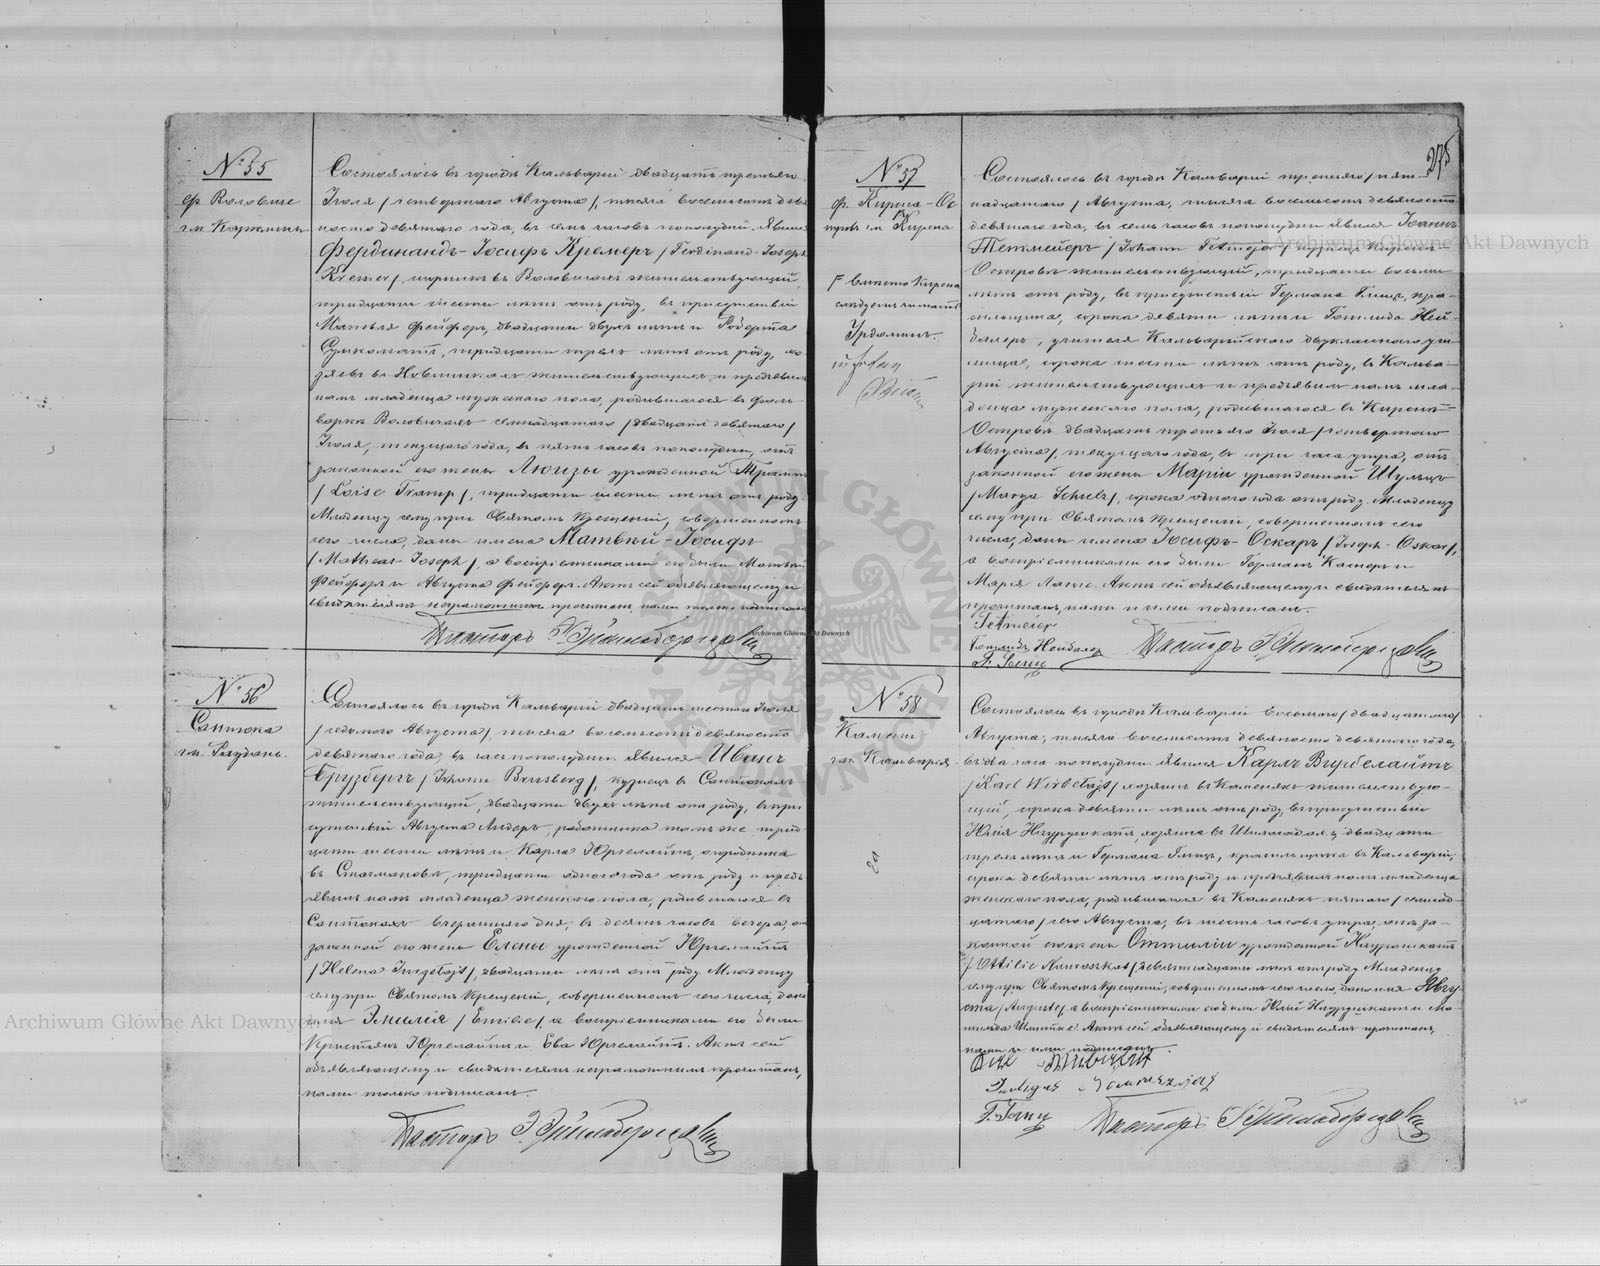 № 55
ф. Воловиче
гм. Кармелинъ
Состоялось въ городѣ Кальваріи двадцать третьяго
Іюля /четвертаго Августа/, тысяча восемьсотъ девя
носто девятаго года, въ семь часовъ пополудни. Явился
Фердинандъ-Іосифъ Кремеръ /Ferdinand-Joseph
Kremer/, въ Воловичахъ жительствующій,
тридцати шести лѣтъ отъ роду, въ присутствіи
Матвѣя Фейферъ, двадцати двухъ лѣтъ и Роберта
тридцати трехъ лѣтъ отъ роду, хо
зяевъ въ жительствующихъ и предъявилъ
намъ младенца мужскаго пола, родившагося въ фоль
варкѣ Воловичахъ семнадцатаго /двадцать девятаго/
Іюля, текущаго года, въ пять часовъ пополудни, отъ
законной его жены Люизы урожденной Трампъ
/Loise Tramp/, тридцати шести лѣтъ отъ роду.
Младенцу сему при Святомъ Крещеніи, совершенномъ
сего числа, даны имена Матвѣй-Іосифъ
/Matheas-Joseph/, а воспріемниками его были Матвѣй
Фейферъ и Августа Фейферъ. Актъ сей объявляющему и
свидѣтелямъ неграмотнымъ прочитанъ, нами только подписанъ
Пасторъ
№ 56
Сантока
гм. Раудань.
Состоялось въ городѣ Кальваріи двадцать шестого Іюля
/седьмого Августа/ тысяча восемьсотъ девяносто
девятаго года, въ часъ пополудни явился Иванъ
Брузбергъ /Johann Brusberg/, кузнецъ въ Сантокахъ
жительствующій, двадцати двухъ лѣтъ отъ роду, въ при
сутствіи Августа Лидеръ, работника тамъ же трид
цати шести лѣтъ и Карла Юргелайтъ, огородника
въ Стагмановѣ, тридцати одного года отъ роду и предъ
явилъ намъ младенца женскаго пола, родившагося въ
Сантокахъ вчерашняго дня, въ десять часовъ вечера, отъ
законной его жены Елены урожденной Юргелайтъ
/Helena Jurgelajt/, двадцати лѣтъ отъ роду. Младенцу
сему при Святомъ Крещеніи, совершенномъ сего числа, дано
имя Эмилія /Emilie/, а воспріемниками его были
Христіянъ Юргелайтъ и Ева Юргелайтъ. Актъ сей
объявляющему и свидѣтелямъ неграмотнымъ прочитанъ,
нами только подписанъ.
Пасторъ
275
№ 57
ф. Кирена-Ос
тровъ гм. Кирена
F вмѣсто Кирена
слѣдуетъ читать
Урдоминъ.
Состоялось въ городѣ Кальваріи третьяго /пят
надцатаго/ Августа, тысяча восемьсотъ девяносто
девятаго года, въ семь часовъ пополудни явился Іоаннъ
Тетмейеръ /Johann Tetmejer/ кузнецъ Киренъ-
Островѣ жительствующій, тридцати восьми
лѣтъ отъ роду, въ присутствіи Германа Гинцъ, кра-
сильщика, сорока девяти лѣтъ и Готлида Ней-
далеръ, учителя Кальварійского двукласнаго учи-
лища, сорока шести лѣтъ отъ роду, въ Кальва-
ріи жительствующихъ и предъявилъ намъ мла-
денца мужескаго пола, родившагося въ Киренъ-
Островѣ двадцать третьяго Іюля /четвертаго
Августа/, текущаго года, въ три часа утра, отъ
законной его жены Маріи урожденной Шульцъ
/Marya Schulz/, сорока одного года отъ роду. Младенцу
сему при Святомъ Крещеніи, совершенномъ сего
числа, даны имена Іосифъ-Оскаръ /Joseph-Oskar/,
а воспріемниками его были Германъ Касперъ и
Марія Ланге. Актъ сей объявляющему и свидѣтелямъ
прочитанъ, нами и ими подписанъ.
Tetmeier
Готлидъ Нейдалеръ
Пасторъ
№ 58
Камень
гм. Кальварія.
Состоялось въ городѣ Кальваріи восьмого /двадцатаго/
Августа, тысяча восемьсотъ девяносто девятаго года,
въ два часа пополудни. Явился Карлъ Вирбелайтъ
/Karl Wirbelajt/ хозяинъ въ Каменяхъ жительствую-
щій, сорока девяти лѣтъ отъ роду, въ присутствіи
Юлія Наурушкатъ, хозяина въ двадцати
трехъ лѣтъ и Германа Гинцъ, красильщика въ Кальваріи,
сорока девяти лѣтъ отъ роду и предъявилъ намъ младенца
женскаго пола, родившагося въ Каменяхъ пятаго /семнад
цатаго/ сего Августа, въ шесть часовъ утра, отъ за-
конной его жены Оттиліи урожденной Наурушкатъ
/Ottilie Nauroszkat/ девятнадцати лѣтъ отъ роду. Младенцу
сему при Святомъ Крещеніи, совершенномъ сего числа, дано имя Авгу
ста /Auguste/, а воспріемниками его были Юлій Наурушкатъ и Ма-
тильда Актъ сей объявляющему и свидѣтелямъ прочитанъ,
нами и ими подписанъ.
Пасторъ
Archiwum Główne Akt Dawnych
Archiwum Główne Akt Dawnych
Archiwum Główne Akt Dawnych